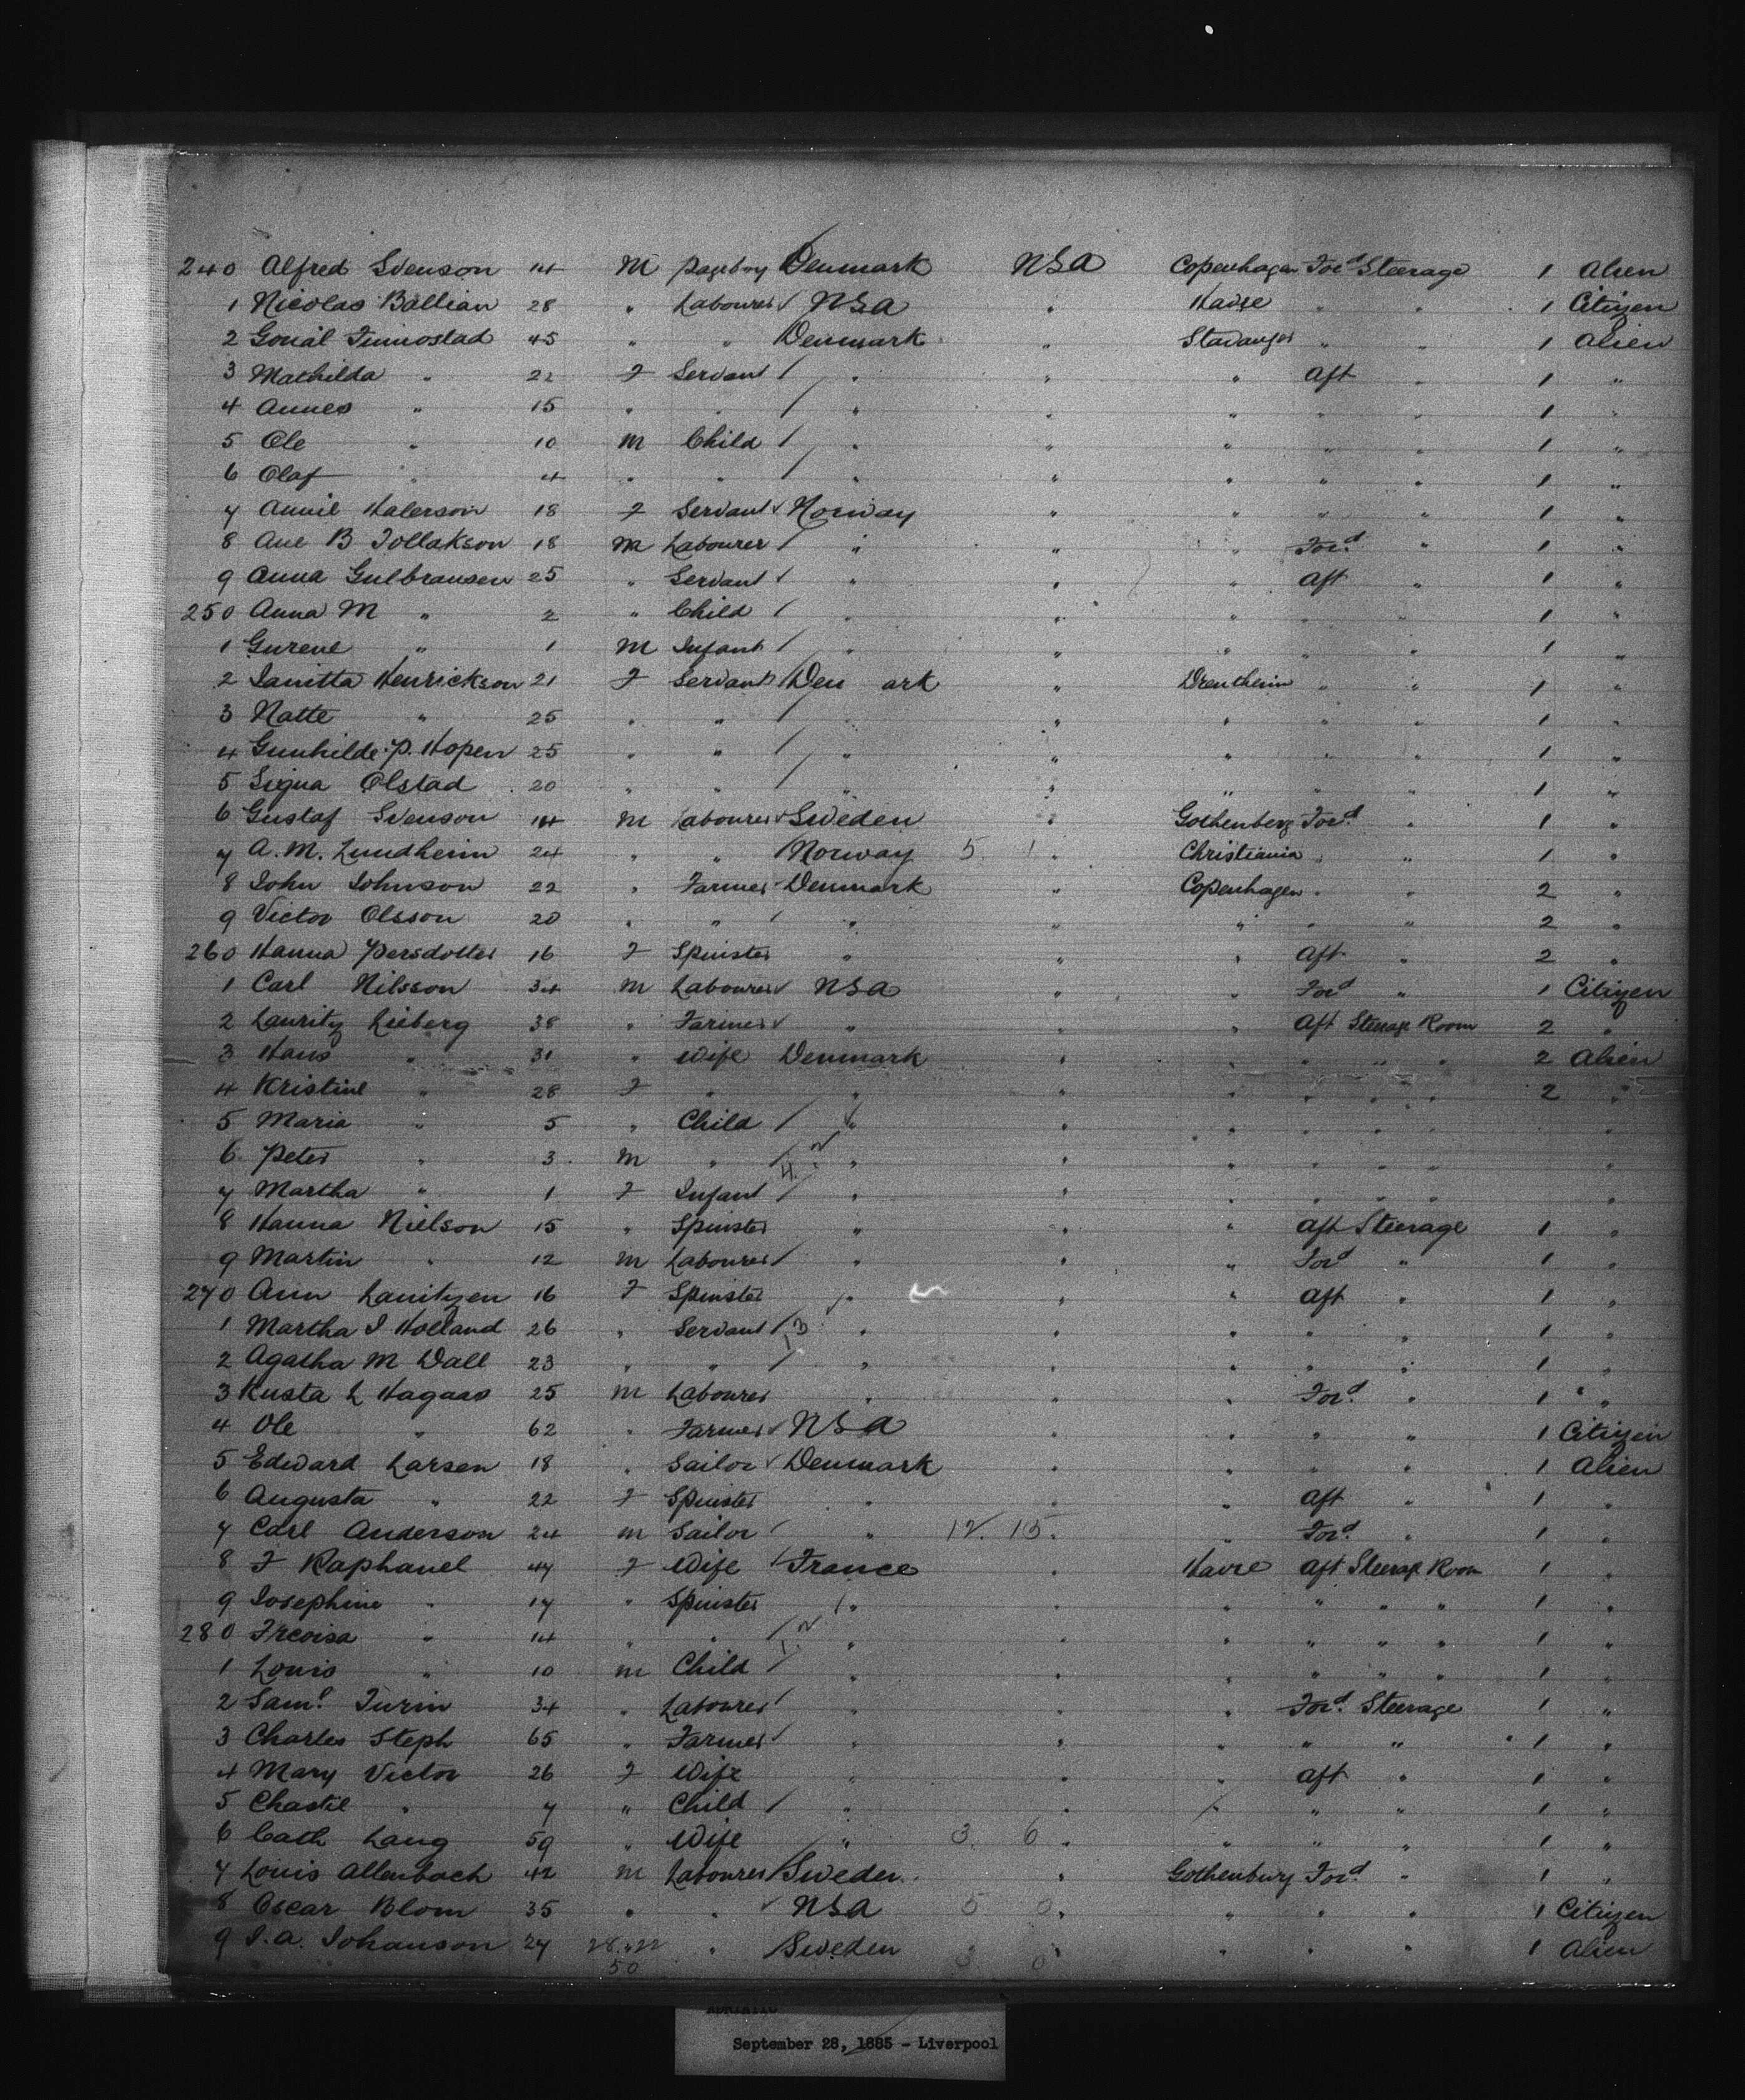 240 Alfred Svenson 14 M pageboy Denmark USA Copenhagen For'd Steerage 1 Alien
1 Nicolas Ballian 28 " Labourer USA " Havre " " 1 Citizen
2 45 " " Denmark " Stavanger " " 1 Alien
3 Mathilda " 22 F Servant " " " Aft " 1 "
4 Annes " 15 " " " " " " " 1 "
5 Ole " 10 M Child " " " " " 1 "
6 Olaf " 4 " " " " " " " 1 "
7 Halerson 18 F Servant Norway " " " " 1 "
8 Ane B Tollakson 18 M Labourer " " " For'd " 1 "
9 Anna Gulbransen 25 " Servant " " " Aft " 1 "
250 Anna M " 2 " Child " " " " " 1 "
1 Gurene " 1 M Infant " " " " " 1 "
2 Henrickson 21 F Servant Den ark " Drentheim " " 1 "
3 Natte " 25 " " " " " " " 1 "
4 Gunhilde P. Hopen 25 " " " " " " " 1 "
5 Signa Olstad 20 " " " " " " " 1 "
6 Gustaf Svenson 14 M Labourer Sweden " Gothenberg For'd " 1 "
7 A. M. Lundheim 24 " " Norway 5 1 " Christiania " " 1 "
8 John Johnson 22 " Farmer Denmark " Copenhagen " " 2 "
9 Victor Olsson 20 " " " " " " " 2 "
260 Hanna Persdotter 16 F Spinster " " " Aft " 2 "
1 Carl Nilsson 34 M Labourer USA " " For'd " 1 Citizen
2 Lauritz Lieberg 38 " Farmer " " " Aft Steerage Room 2 "
3 Hans " 31 " Wife Denmark " " " " " 2 Alien
4 Kristine " 28 F " " " " " " " 2 "
5 Maria " 5 " Child " " " " " " "
6 Peter " 3 M " " " " " " " "
7 Martha " 1 F Infant " " " " " " "
8 Hanna Nielson 15 " Spinster " " " Aft Steerage 1 "
9 Martin " 12 M Labourer " " " For'd " 1 "
270 Ann Lauitzen 16 F Spinster " " " Aft " 1 "
1 Martha I Holland 26 " Servant " " " " " 1 "
2 Agatha M Dall 23 " " " " " " " 1 "
3 Kusta L Hagaas 25 M Labourer " " " For'd " 1 "
4 Ole " 62 " Farmer USA " " " " 1 Citizen
5 Edward Larsen 18 " Sailor Denmark " " " " 1 Alien
6 Augusta " 22 F Spinster " " " Aft " 1 "
7 Carl Anderson 24 M Sailor " 12. 15 " " For'd " 1 "
8 F Raphanel 47 F Wife France " Havre Aft Steerage Room 1 "
9 Josephine " 17 " Spinster " " " " " " 1 "
280 " 14 " " " " " " " " 1 "
1 Louis " 10 M Child " " " " " " 1 "
2 Sam'l Turin 34 " Labourer " " " For'd Steerage 1 "
3 Charles Steph 65 " Farmer " " " " " 1 "
4 Mary Victor 26 F Wife " " " Aft " 1 "
5 Chastie " 7 " Child " " " " " 1 "
6 Cath Lang 59 " Wife " 3. 6 " " " " 1 "
7 Louis Allenbach 42 M Labourer Sweden " Gothenburg For'd " 1 "
8 Oscar Blom 35 " " USA 5 0 " " " " 1 Citizen
9 J. A. Johanson 27 28.22 " Sweden 3 0 " " " " 1 Alien
50
ADRIATIC
September 28, 1885 - Liverpool